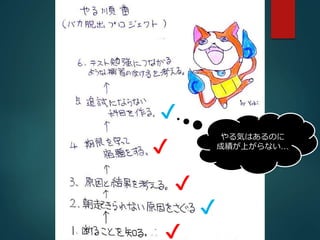 やる順番
(バカ脱出プロジェクト)
6. テスト勉強につながる
ような補習の受け方を考える。
↑
by Yuki
5. 追試にならない
科目を作る。
↑
やる気はあるのに
成績が上がらない…
4. 期限を守って
宿題をする。
↑
3. 原因と結果を考える。
↑
2. 朝起きられない原因をさぐる
↑
1. 断ることを知る。